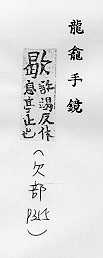 龍龕手鏡
歇許謁反休
息亭止也
(欠部